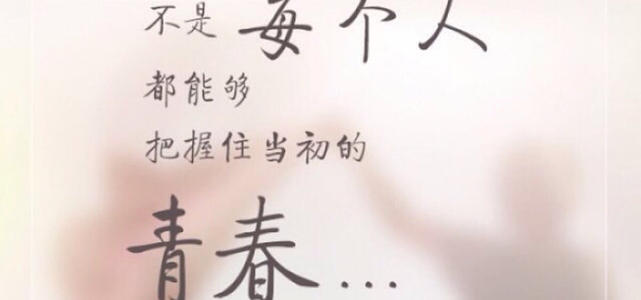 不是每个人
都能够
把握住当初的
青春...